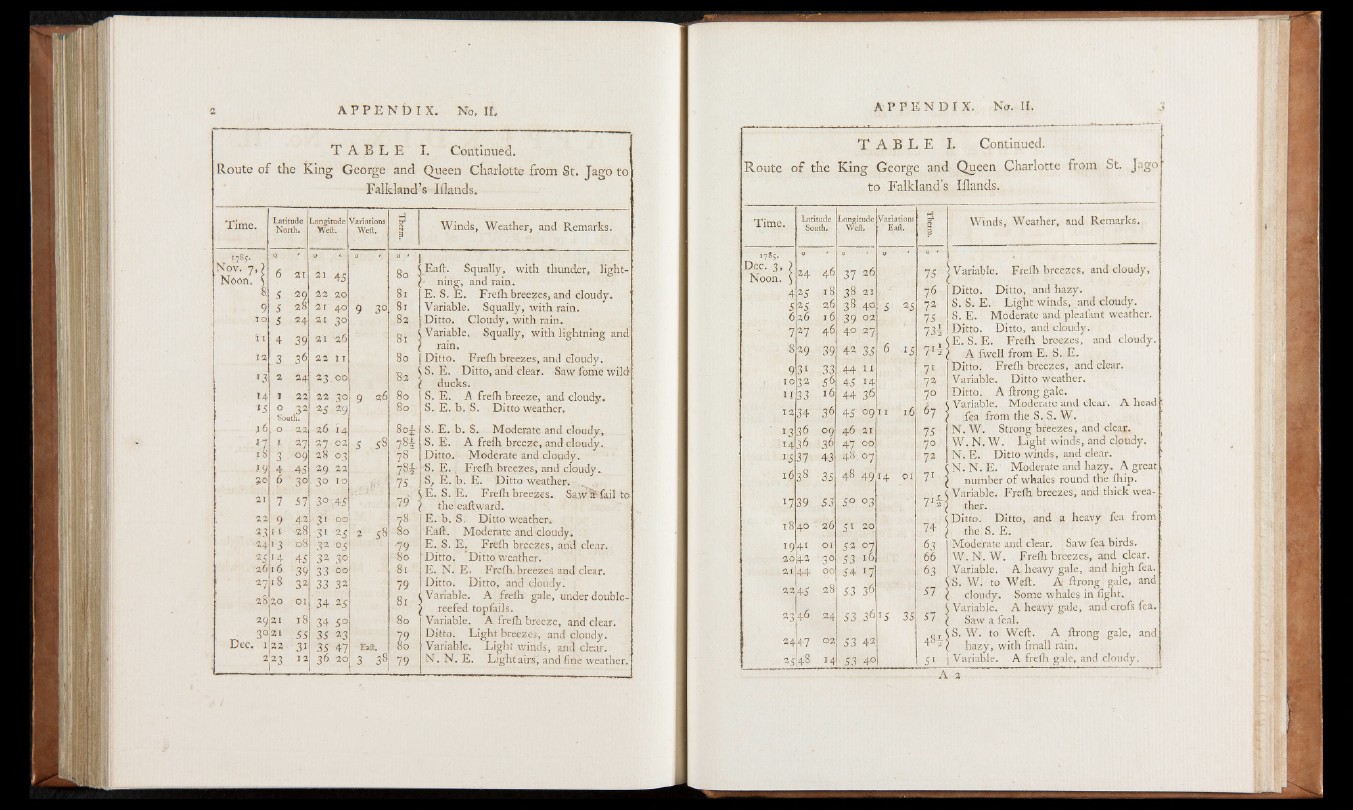 2 APPENDIX. No. II.
TABLE I. Continued.
Route of the King George and Queen Charlotte from St. Jago to
Falkland's Iſlands.
Time. Latitude North. Longitude Weſt. Variations Weſt. Therm. Winds, Weather, and Remarks.
1785. o ' o ' o ' o '
Nov. 7, Noon. 6 21 21 45 80 Eaſt. Squally, with thunder, light-
ning, and rain.
8 5 29 22 20 81 E. S. E. Freſh breezes, and cloudy.
9 5 28 21 40 9 30 81 Variable. Squally, with rain.
10 5 24 21 30 82 Ditto. Cloudy, with rain.
11 4 39 21 26 81 Variable. Squally, with lightning and
rain.
12 3 36 22 11 80 Ditto. Freſh breezes, and cloudy.
13 2 24 23 00 82 S. E. Ditto, and clear. Saw ſome wild
ducks.
14 1 22 22 30 9 26 80 S. E. A freſh breeze, and cloudy.
15 0 32 25 29 80 S. E. b. S. Ditto weather.
South.
16 0 22 26 14 80½ S. E. b. S. Moderate and cloudy.
17 1 27 27 02 5 58 78½ S. E. A freſh breeze, and cloudy.
18 3 09 28 03 78 Ditto. Moderate and cloudy.
19 4 45 29 22 78½ S. E. Freſh breezes, and cloudy.
20 6 30 30 10 75 S. E. b. E. Ditto weather.
21 7 57 30 45 79 E. S. E. Freſh breezes. Saw a ſail to
the eaſtward.
22 9 42 31 00 78 E. b. S. Ditto weather.
23 11 28 31 25 2 58 80 Eaſt. Moderate and cloudy.
24 13 08 32 05 79 E. S. E. Freſh breezes, and clear.
25 14 45 32 30 80 Ditto. Ditto weather.
26 16 39 33 00 81 E. N. E. Freſh breezes and clear.
27 18 32 33 32 79 Ditto. Ditto, and cloudy.
28 20 01 34 25 81 Variable. A freſh gale, under double-
reefed topſails.
29 21 18 34 50 80 Variable. A freſh breeze, and clear.
30 21 55 35 23 79 Ditto. Light breezes, and cloudy.
Dec. 1 22 31 35 47 Eaſt. 80 Variable. Light winds, and clear.
2 23 12 36 20 3 38 79 N. N. E. Light airs, and fine weather.
APPENDIX. No. II. 3
TABLE I. Continued.
Route of the King George and Queen Charlotte from St. Jago
to Falkland's Iſlands.
Time. Latitude South. Longitude Weſt. Variations Eaſt. Therm. Winds, Weather, and Remarks.
1785. o ' o ' o ' o '
Dec. 3, Noon. 24 46 37 26 75 Variable. Freſh breezes, and cloudy,
4 25 18 38 21 76 Ditto. Ditto, and hazy.
5 25 26 38 40 5 25 72 S. S. E. Light winds, and cloudy.
6 26 16 39 02 75 S. E. Moderate and pleaſant weather.
7 27 46 40 27 73½ Ditto. Ditto, and cloudy.
8 29 39 42 35 6 15 71½ E. S. E. Freſh breezes, and cloudy.
A ſwell from E. S. E.
9 31 33 44 11 71 Ditto. Freſh breezes, and clear.
10 32 56 45 14 72 Variable. Ditto weather.
11 33 16 44 36 70 Ditto. A ſtrong gale.
12 34 36 45 09 11 16 67 Variable. Moderate and clear. A head
ſea from the S. S. W.
13 36 09 46 21 75 N. W. Strong breezes, and clear.
14 36 36 47 00 70 W. N. W. Light winds, and cloudy.
15 37 43 48 07 72 N. E. Ditto winds, and clear.
16 38 35 48 49 14 01 71 N. N. E. Moderate and hazy. A great
number of whales round the ſhip.
17 39 53 50 03 71½ Variable. Freſh breezes, and thick wea-
ther.
18 40 26 51 20 74 Ditto. Ditto, and a heavy ſea from
the S. E.
19 41 01 52 07 63 Moderate and clear. Saw ſea birds.
20 42 30 53 16 66 W. N. W. Freſh breezes, and clear.
21 44 00 54 17 63 Variable. A heavy gale, and high ſea.
22 45 28 53 36 57 S. W. to Weſt. A ſtrong gale, and
cloudy. Some whales in ſight.
23 46 24 53 36 15 35 57 Variable. A heavy gale, and croſs ſea.
Saw a ſeal.
24 47 02 53 42 48½ S. W. to Weſt. A ſtrong gale, and
hazy, with ſmall rain.
25 48 14 53 40 51 Variable. A freſh gale, and cloudy.
A 2